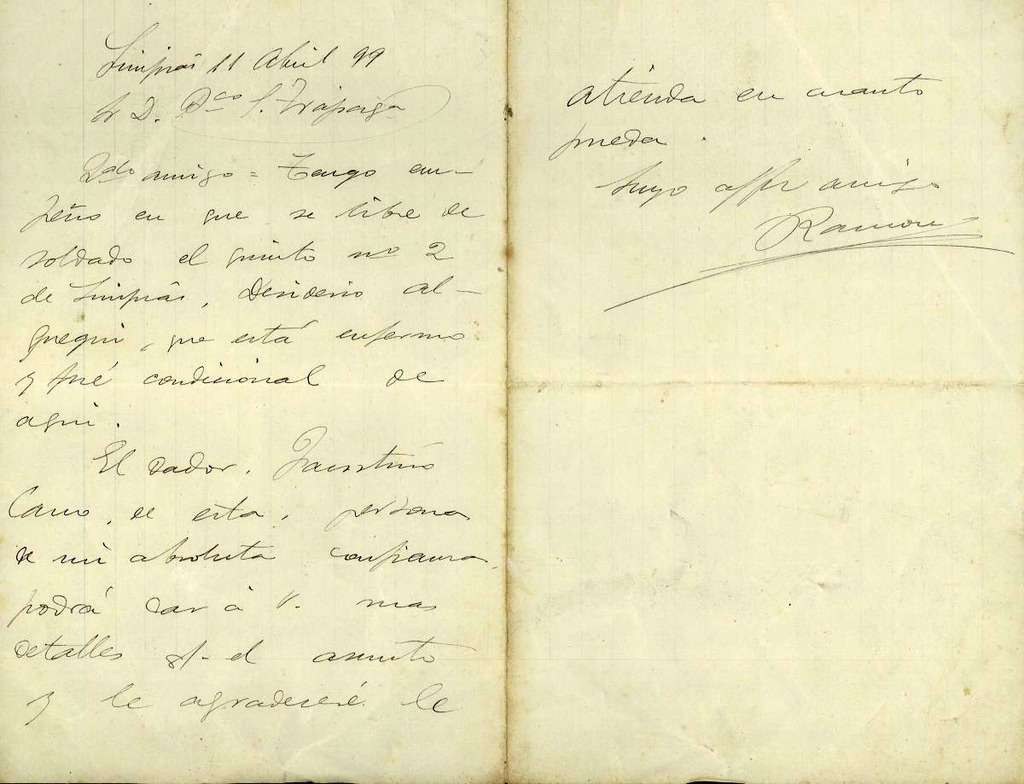 Limpias 11 Abril 99
Sr D. Fco S. Trápaga
Qdo amigo = Tengo em-
peño en que se libre de
soldado el quinto nº 2
de Limpias, Desiderio Al-
quegui, que está enfermo
y fué condicional de
aqui.
El dador, Faustino
Cano, de esta, persona
de mi absoluta confianza,
podrá dar à V. mas
detalles s/- el asunto
y le agradeceré le
atienda en cuanto
pueda.
Suyo affmo amigo
Ramón